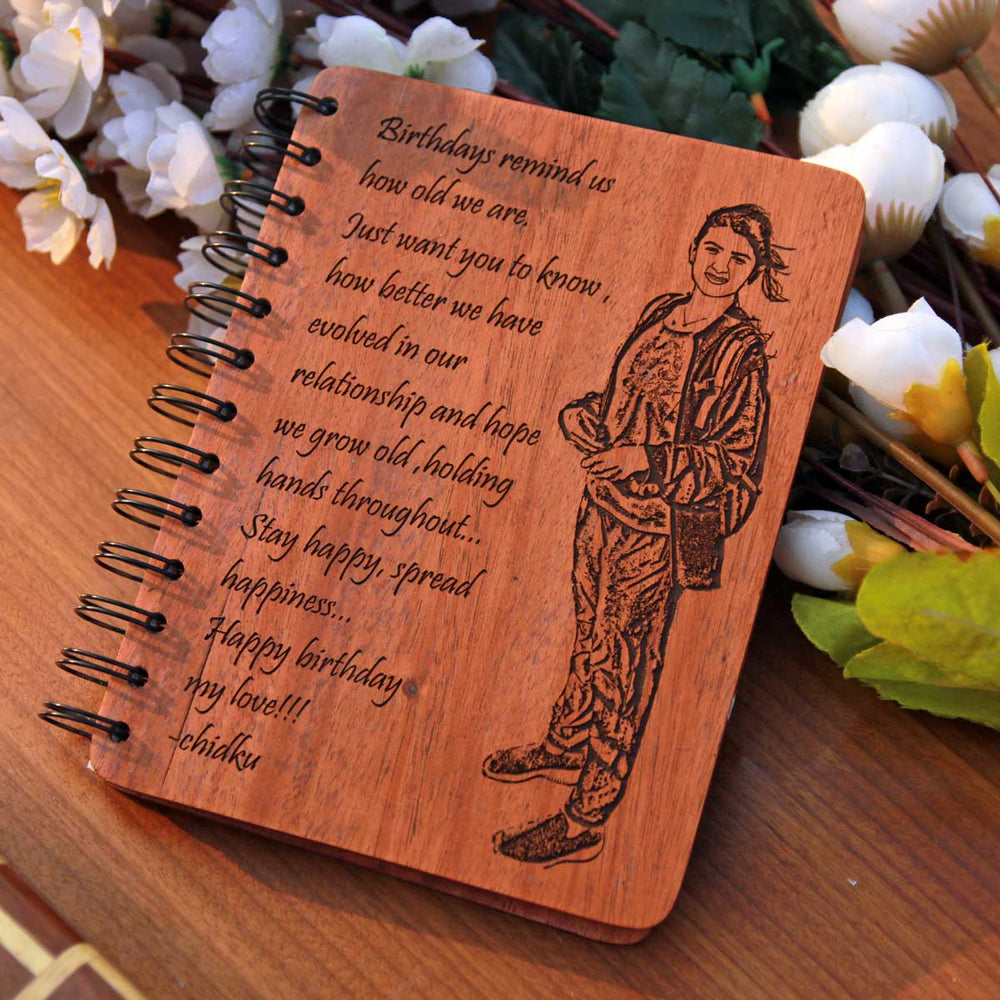 Birthdays remind us
how old we are,
Just want you to know ,
how better we have
evolved in our
relationship and hope
we grow old ,holding
hands throughout...
Stay happy, spread
happiness...
Happy birthday
my love!!!
-chidku